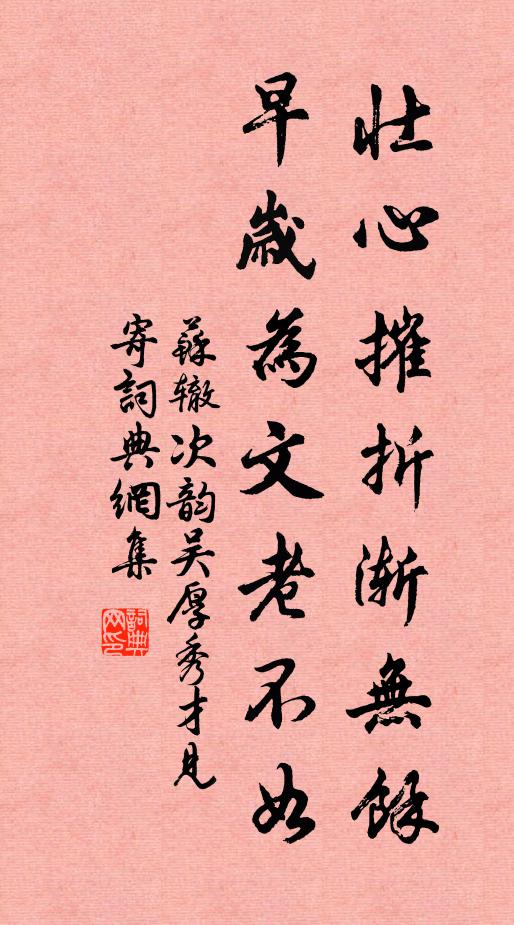 壯心摧折漸無餘
早歲為文老不如
蘇辙次韵吴厚秀才見
寄詞典網集
詞典网印